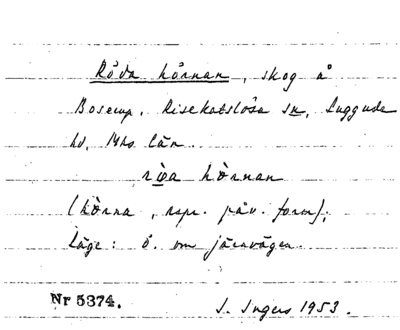 Röda hörnan, skog å
Boserup, Risekatslösa sn, Luggude
hd, Mhs. län.
röa hörnan
(hörna, rspr. påv. form);
Läge: ö. om järnvägen.
Nr 5374.
I. Ingers 1953.